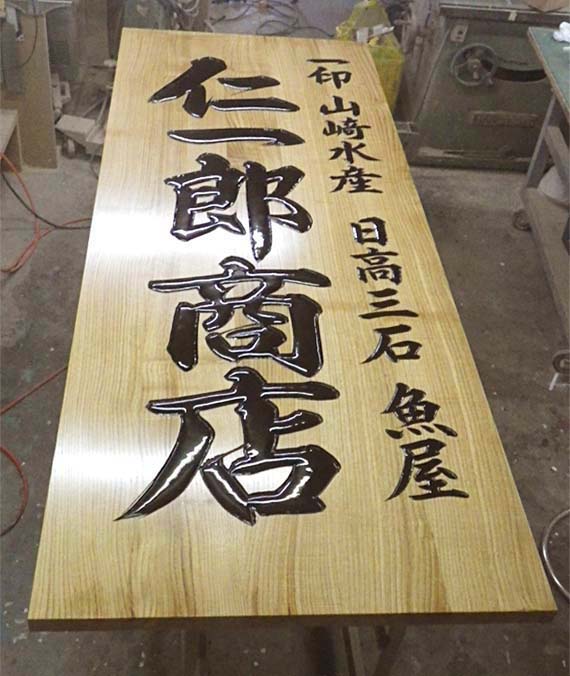 一印 山崎水産 日高三石 魚屋
仁一郎商店